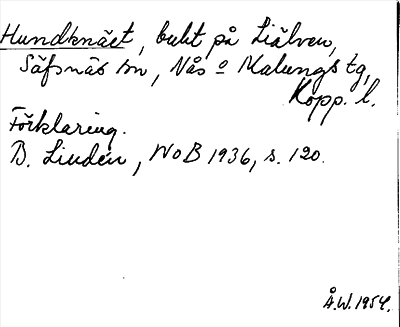 Hundknäet, bukt på Liälven,
Säfsnäs sn, Nås o Malungs tg,
Kopp. l.
Förklaring.
B. Lindén, NoB 1936, s. 120.
Å.W. 1954.